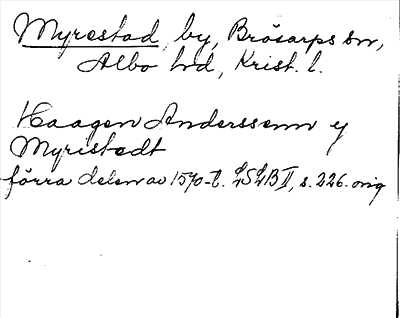 Myrestad, by, Brösarps sn,
Albo hd, Krist. l.
Haagen Anderssenn y
Myristedt
förra delen av 1570-t. LSLB II, s. 226. orig